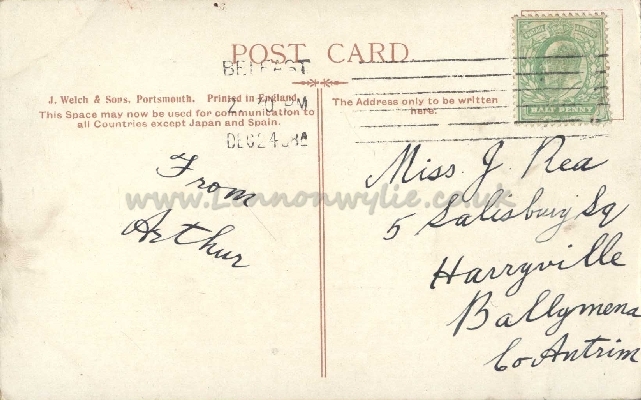 POST CARD
BELFAST
J. Welch & Sons, Portsmouth. Printed in England.
This Space may now be used for communication to
all Countries except Japan and Spain.
DEC 24
The Address only to be written
here.
POSTAGE REVENUE
HALF PENNY
www.Lennonwylie.co.uk
From
Arthur
Miss. J. Rea
5 Salisbury Sq
Harryville
Ballymena
Co Antrim